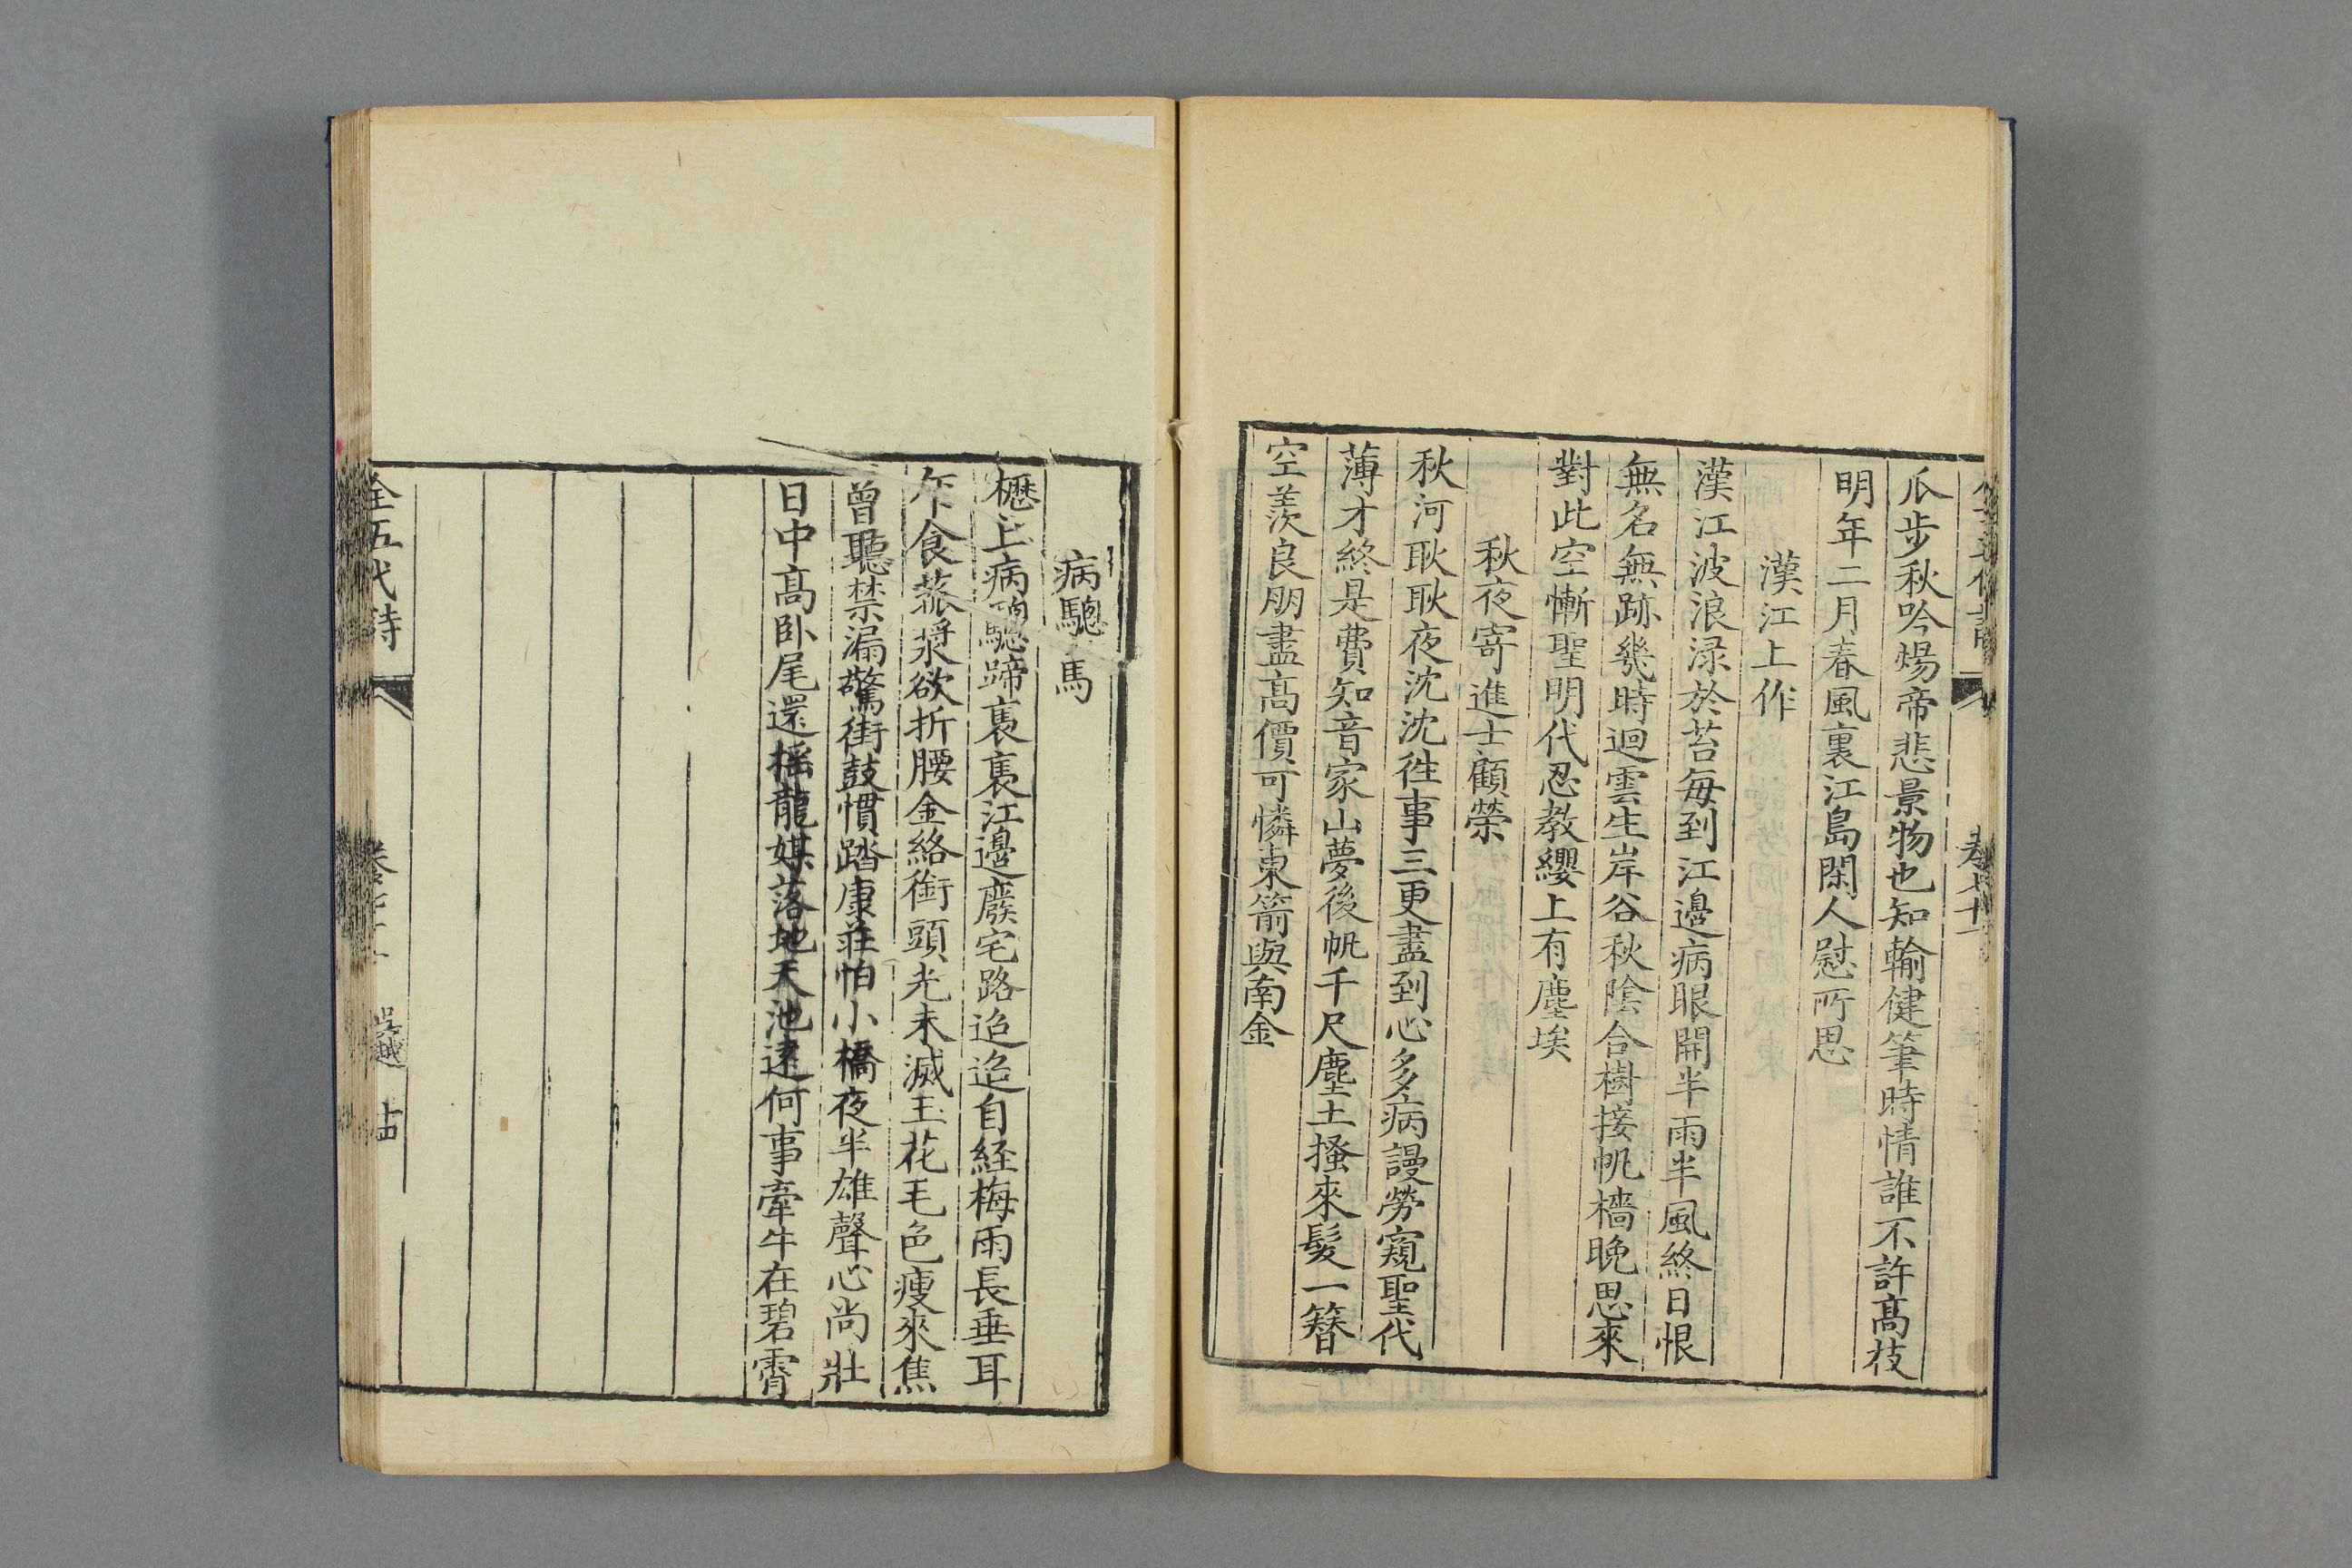 瓜步秋吟煬帝悲景物也知輸健筆時情誰不許髙枝
明年二月春風裏江島閑人慰所思
漢江上作
漢江波浪渌於苔每到江邊病眼開半雨半風終日恨
無名無跡幾時迴雲生岸谷秋陰合樹接帆檣晚思來
對此空慚聖明代忍教纓上有塵埃
秋夜寄進士顧榮
秋河耿耿夜沈沈徃事三更盡到心多病謾勞窺聖代
薄才終是費知音家山夢後帆千尺塵土搔來髮一簪
空羨良朋盡髙價可憐東箭與南金
病驄馬
櫪上病驄蹄裊裊江邊廢宅路迢迢自經梅雨長垂耳
乍食菰漿欲折腰金絡銜頭光未滅玉花毛色瘦來焦
曾聽禁漏驚街鼓慣踏康莊怕小橋夜半雄聲心尚壯
日中髙卧尾還搖龍媒落地天池遠何事牽牛在碧霄
全五代詩
吳越
十四